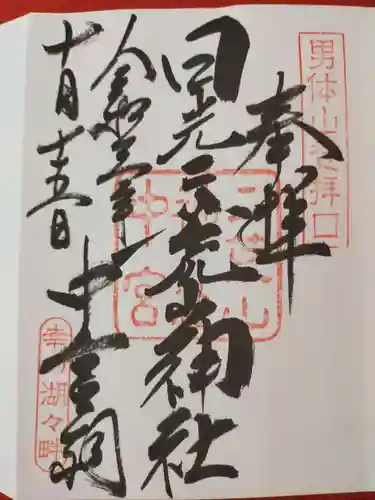 男体山登拝口
奉拝
日光二荒山神社
二荒山
中宮
令和三年
中宮祠
十月十五日
湖々畔